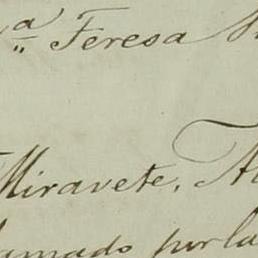 ª Teresa
Miravete.
amado por la